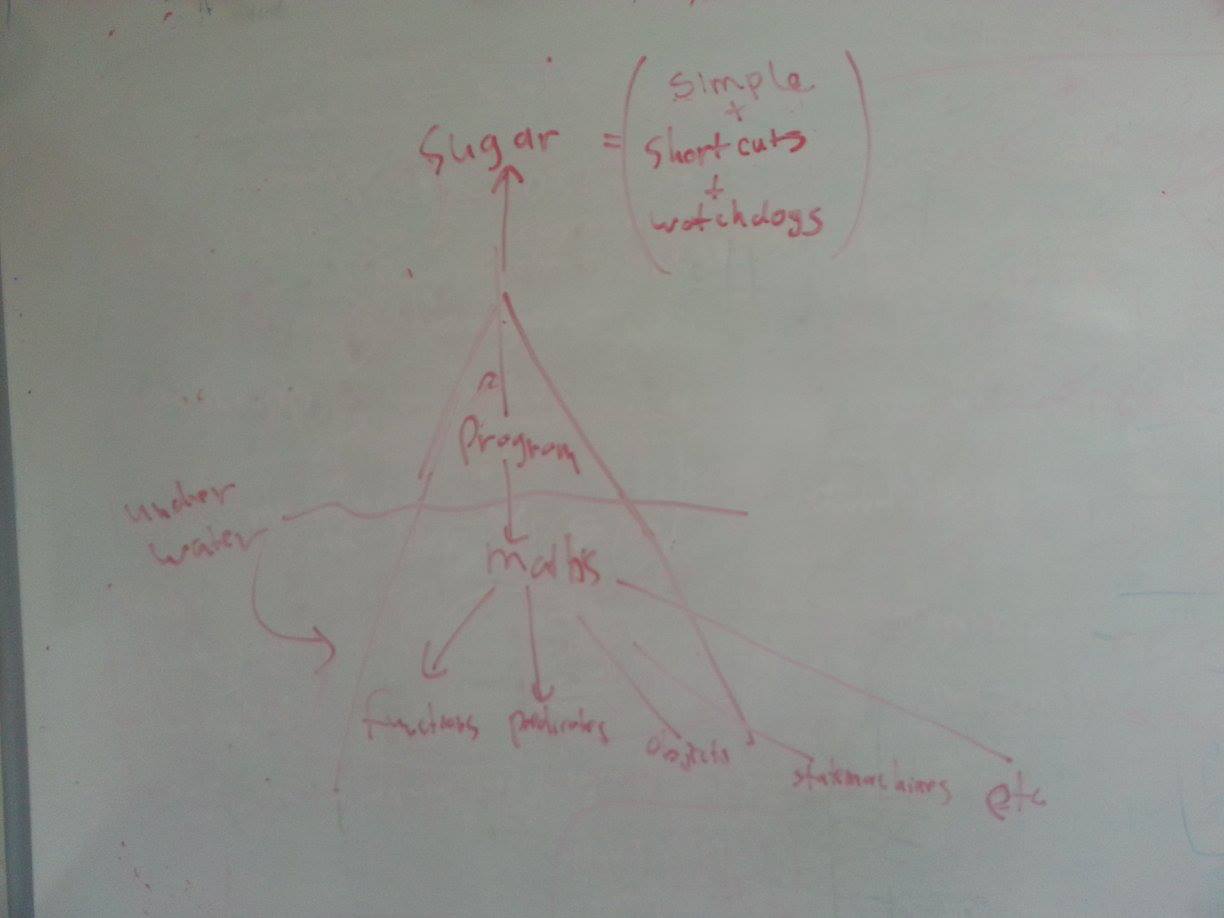 simple
+
Sugar = shortcuts
+
watchdogs
Program
under
water
maths
functions predicates objects statemachines etc